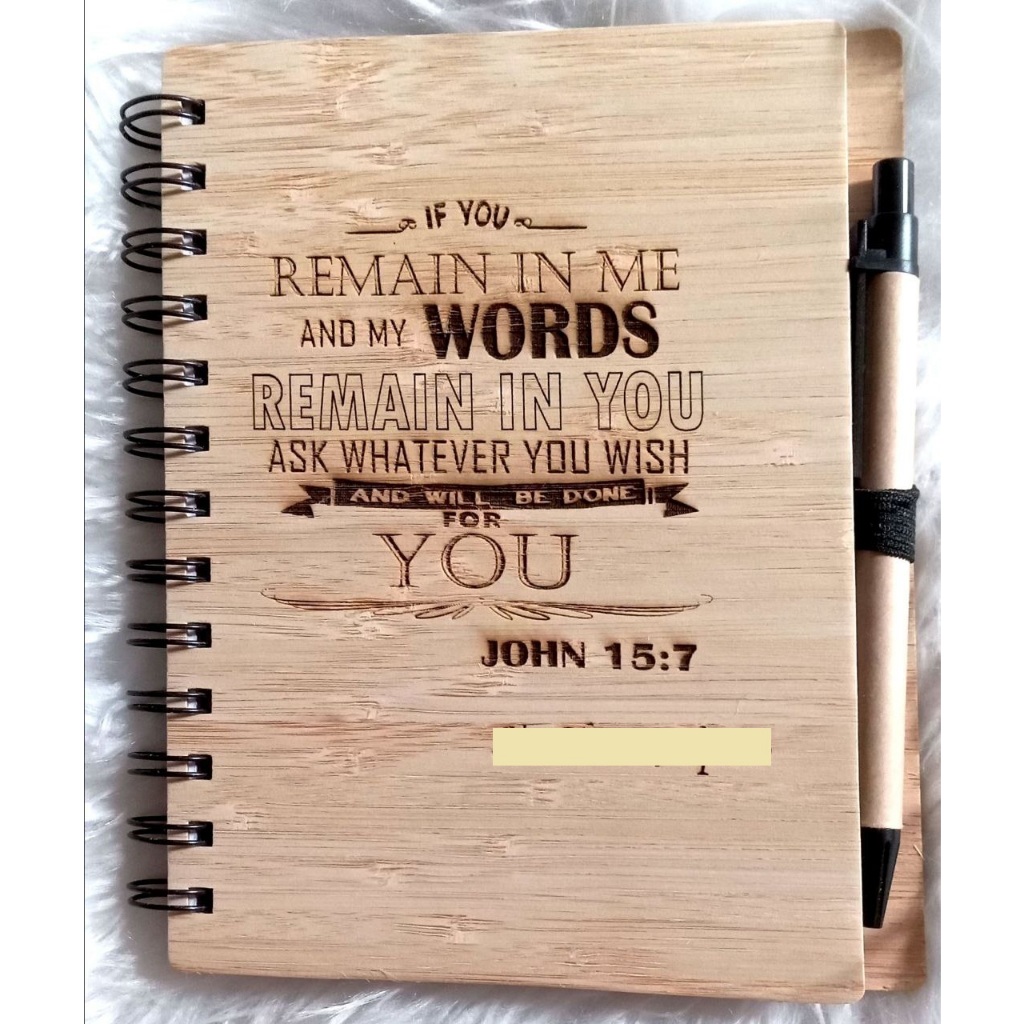 IF YOU
REMAIN IN ME
AND MY WORDS
REMAIN IN YOU
ASK WHATEVER YOU WISH
AND WILL BE DONE
FOR
YOU
JOHN 15:7